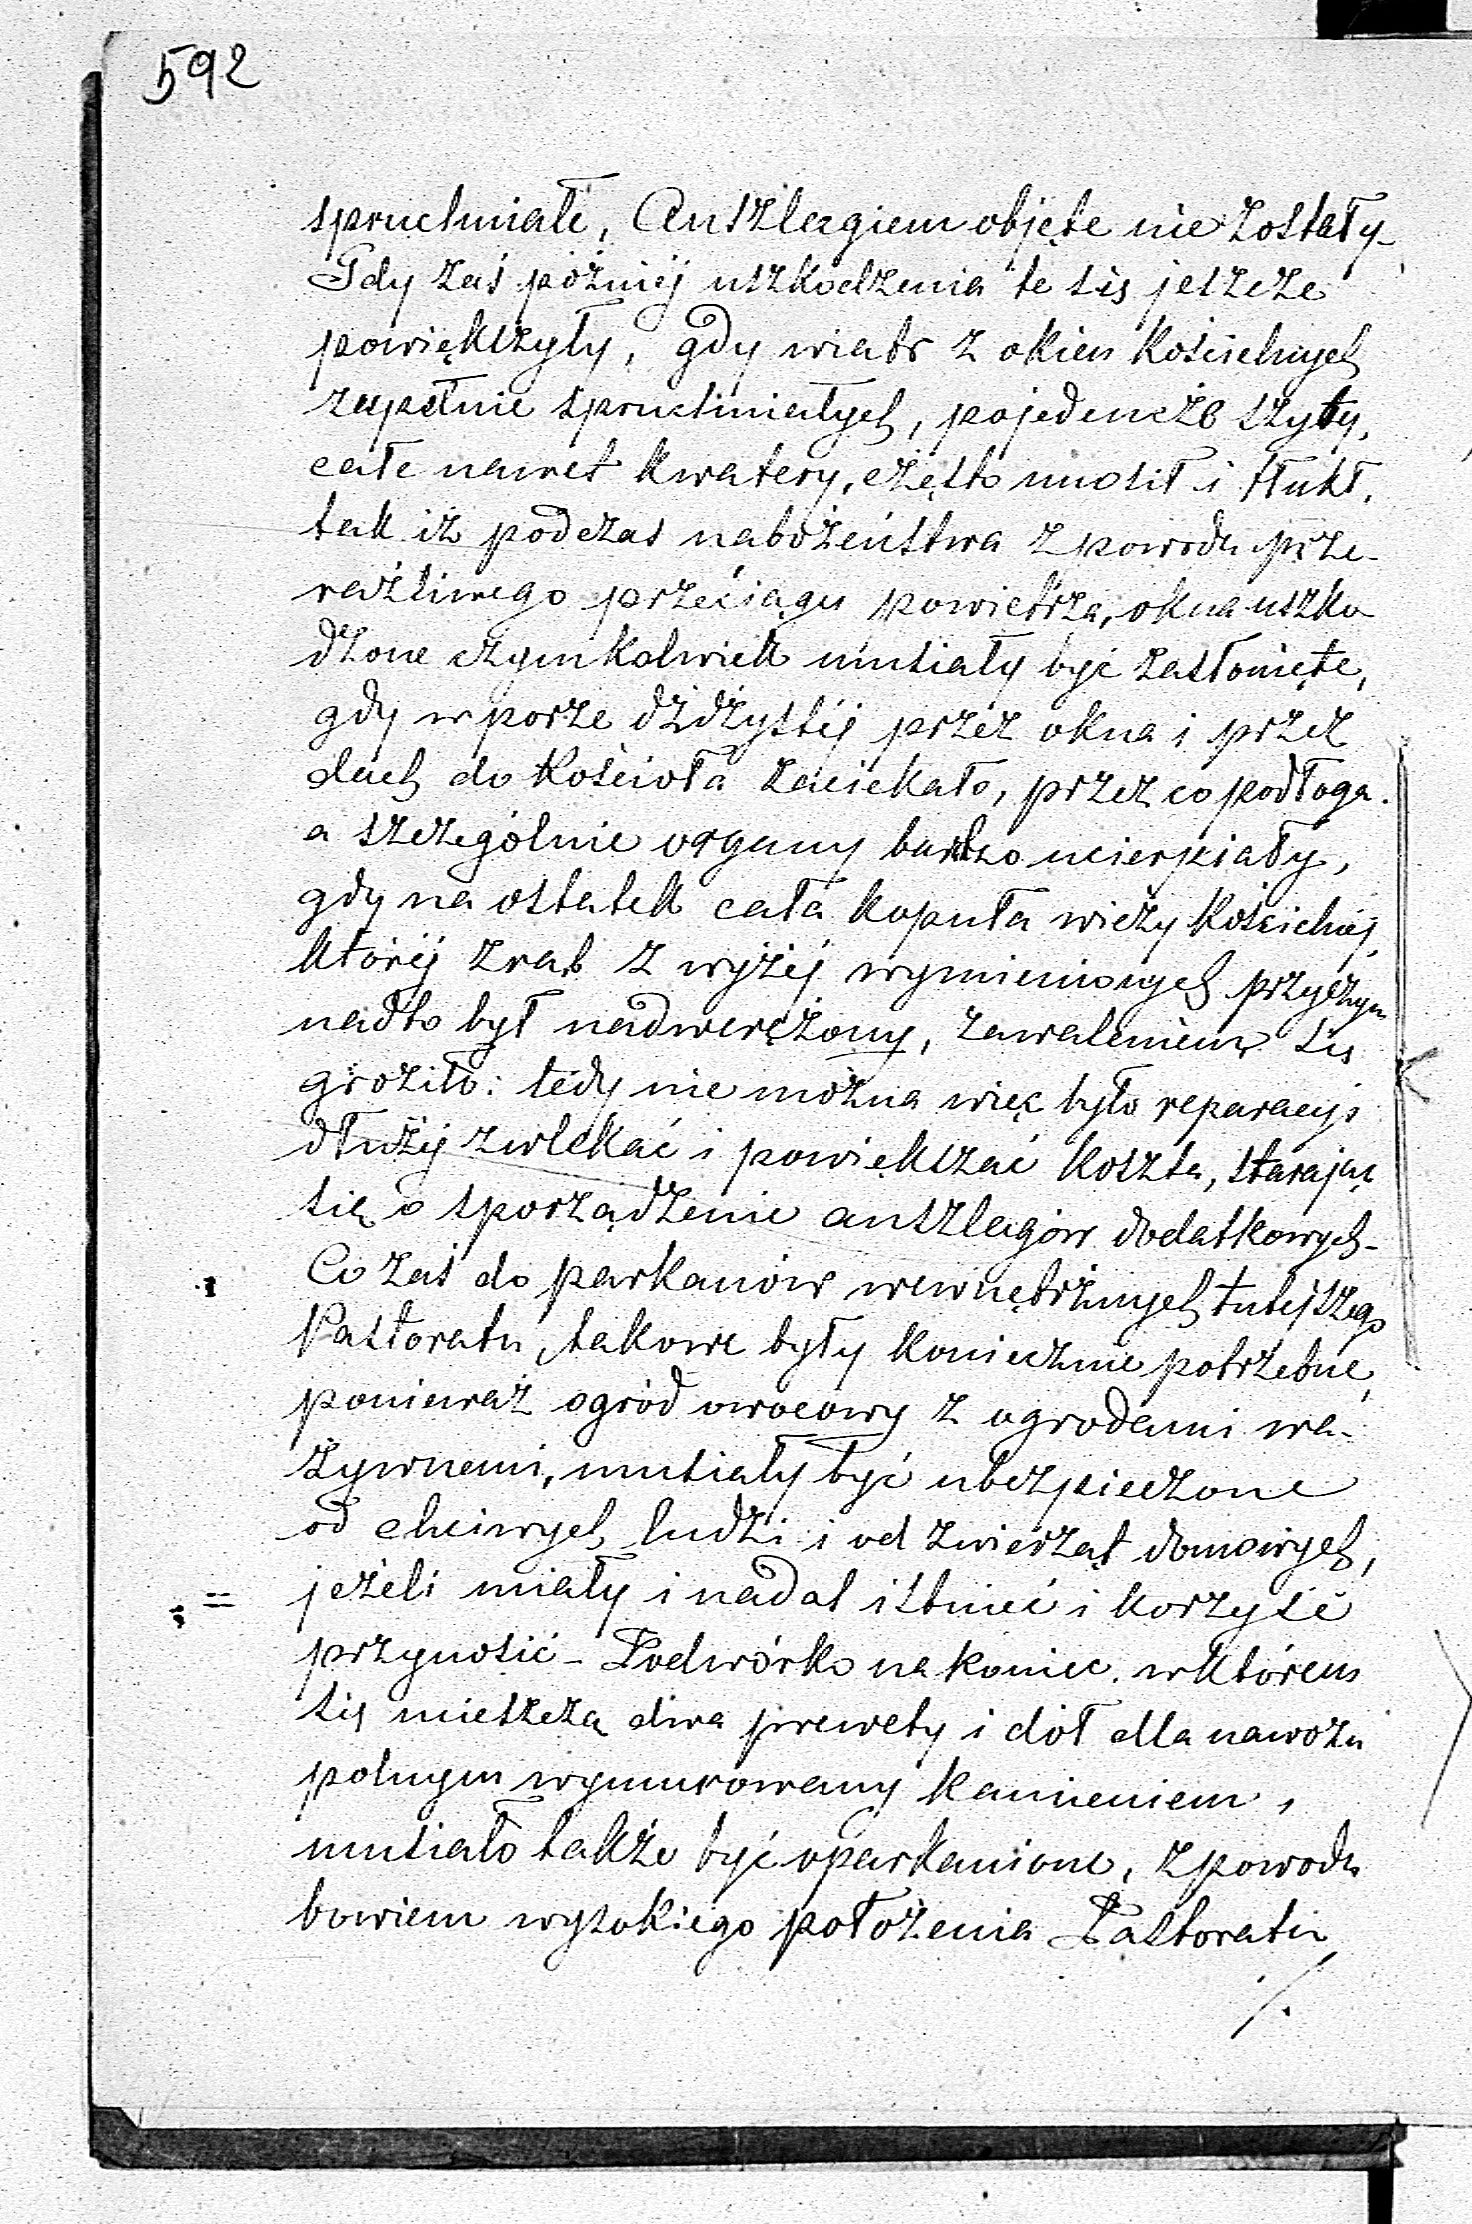 592
spruchniałe, Anszlagiem objęte nie zostały.
Gdy zaś późniéj uszkodzenia te się jeszcze
powiększyły, gdy wiatr z okien Kościelnych
zupełnie spruchniałych, pojedencze szyby,
całe nawet kwatery, często unosił i tłukł,
tak iż podczas nabożeństwa z powodu prze-
raźliwego przeciągu powietrza, okna uszko
dzone czymkolwiek musiały być zasłonięte,
gdy w porze dżdżystéj przez okna i przez
dach do Kościoła zaciekało, przez co podłoga
a szczególnie organy bardzo ucierpiały,
gdy na ostatek cała kopuła wieży Kościelnéj
któréj zrąb z wyżéj wymienionych przyczyn
nadto był nadwerężony, zawaleniem się
groziło: tedy nie można więc było reparacyi
dłużéj zwlekać i powiększać koszta, starając
się o sporządzenie anszlagów dodatkowych-
Co zaś do parkanów wewnętrznych tutejszego
Pastoratu, takowe były koniecznie potrzebne,
ponieważ ogród owocowy z ogrodami wa-
żywnemi, musiały być ubezpieczone
od chciwych ludzi i od zwierząt domowych,
= jeżeli miały i nadal istnieć i korzyść
przynosić - Podwórko na koniec, w którem
się mieszczą dwa prewety i dół dla nawozu
polnym wymurowany kamieniem,
musiało także być oparkanione, z powodu
bowiem wysokiego położenia Pastoratu
/.